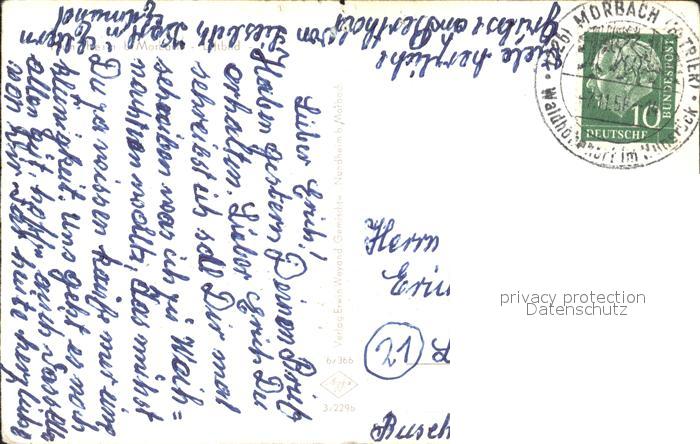 Lieber Erich!
Haben gestern Deinen Brief
erhalten. Lieber Erich Du
schreibst ich soll Dir mal
schreiben was ich zu Weih=
nachten möchte, das müßt
Du ja wissen kaufe mir nur eine
kleinigkeit. Uns geht es noch
allen gut, hoffe auch dasselbe
von Dir. Für heute herzliche
viele herzliche
Grüße an Bertha von
Liesbeth,
Eltern
Edmund
Verlag Erwin Weyand, Gemischtw., Nordheim b/Morbach
6/366
3/2296
(22b) MORBACH (BZ TRIER)
Waldhöhenort im Hunsrück
10
DEUTSCHE
BUNDESPOST
Herrn
Eri
21
Busch
privacy protection
Datenschutz